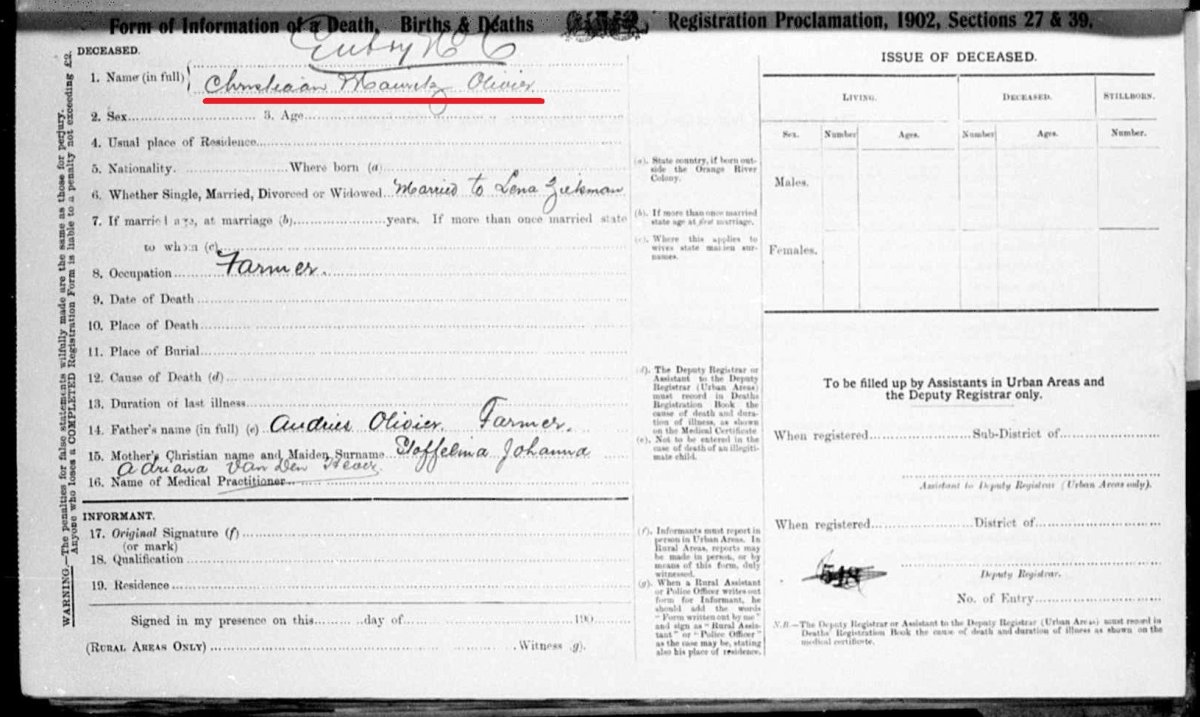 Form of Information of a Death, Births & Deaths Registration Proclamation, 1902, Sections 27 & 39.
Entry No
DECEASED.
1. Name (in full) Christiaan Mauritz Olivier
2. Sex 3. Age
4. Usual place of Residence
5. Nationality. Where born (a)
6. Whether Single, Married, Divorced or Widowed Married to Lena Ziekman
7. If married age, at marriage (b) years. If more than once married state
to whom (c)
8. Occupation Farmer.
9. Date of Death
10. Place of Death
11. Place of Burial
12. Cause of Death (d)
13. Duration of last illness
14. Father's name (in full) (e) Andries Olivier. Farmer.
15. Mother's Christian name and Maiden Surname Toffelina Johanna
Adriana Van Den Heever
16. Name of Medical Practitioner
INFORMANT.
17. Original Signature (f)
(or mark)
18. Qualification
19. Residence
Signed in my presence on this day of 190
(RURAL AREAS ONLY) Witness (g).
WARNING.—The penalties for false statements wilfully made are the same as those for perjury.
Anyone who loses a COMPLETED Registration Form is liable to a penalty not exceeding £2.
(a). State country, if born out-
side the Orange River
Colony.
(b). If more than once married
state age at first marriage.
(c). Where this applies to
wives state maiden sur-
names.
(d). The Deputy Registrar or
Assistant to the Deputy
Registrar (Urban Areas)
must record in Deaths
Registration Book the
cause of death and dura-
tion of illness, as shown
on the Medical Certificate
(e). Not to be entered in the
case of death of an illegiti-
mate child.
(f). Informants must report in
person in Urban Areas. In
Rural Areas, reports may
be made in person, or by
means of this form, duly
witnessed.
(g). When a Rural Assistant
or Police Officer writes out
form for Informant, he
should add the words
"Form written out by me"
and sign as "Rural Assis-
tant" or "Police Officer"
as the case may be, stating
also his place of residence.
ISSUE OF DECEASED.
LIVING. DECEASED. STILLBORN.
Sex. Number Ages. Number Ages. Number.
Males.
Females.
To be filled up by Assistants in Urban Areas and
the Deputy Registrar only.
When registered Sub-District of
Assistant to Deputy Registrar (Urban Areas only).
When registered District of
548
Deputy Registrar.
No. of Entry
N.B.—The Deputy Registrar or Assistant to the Deputy Registrar (Urban Areas) must record in
Deaths' Registration Book the cause of death and duration of illness as shown on the
medical certificate.